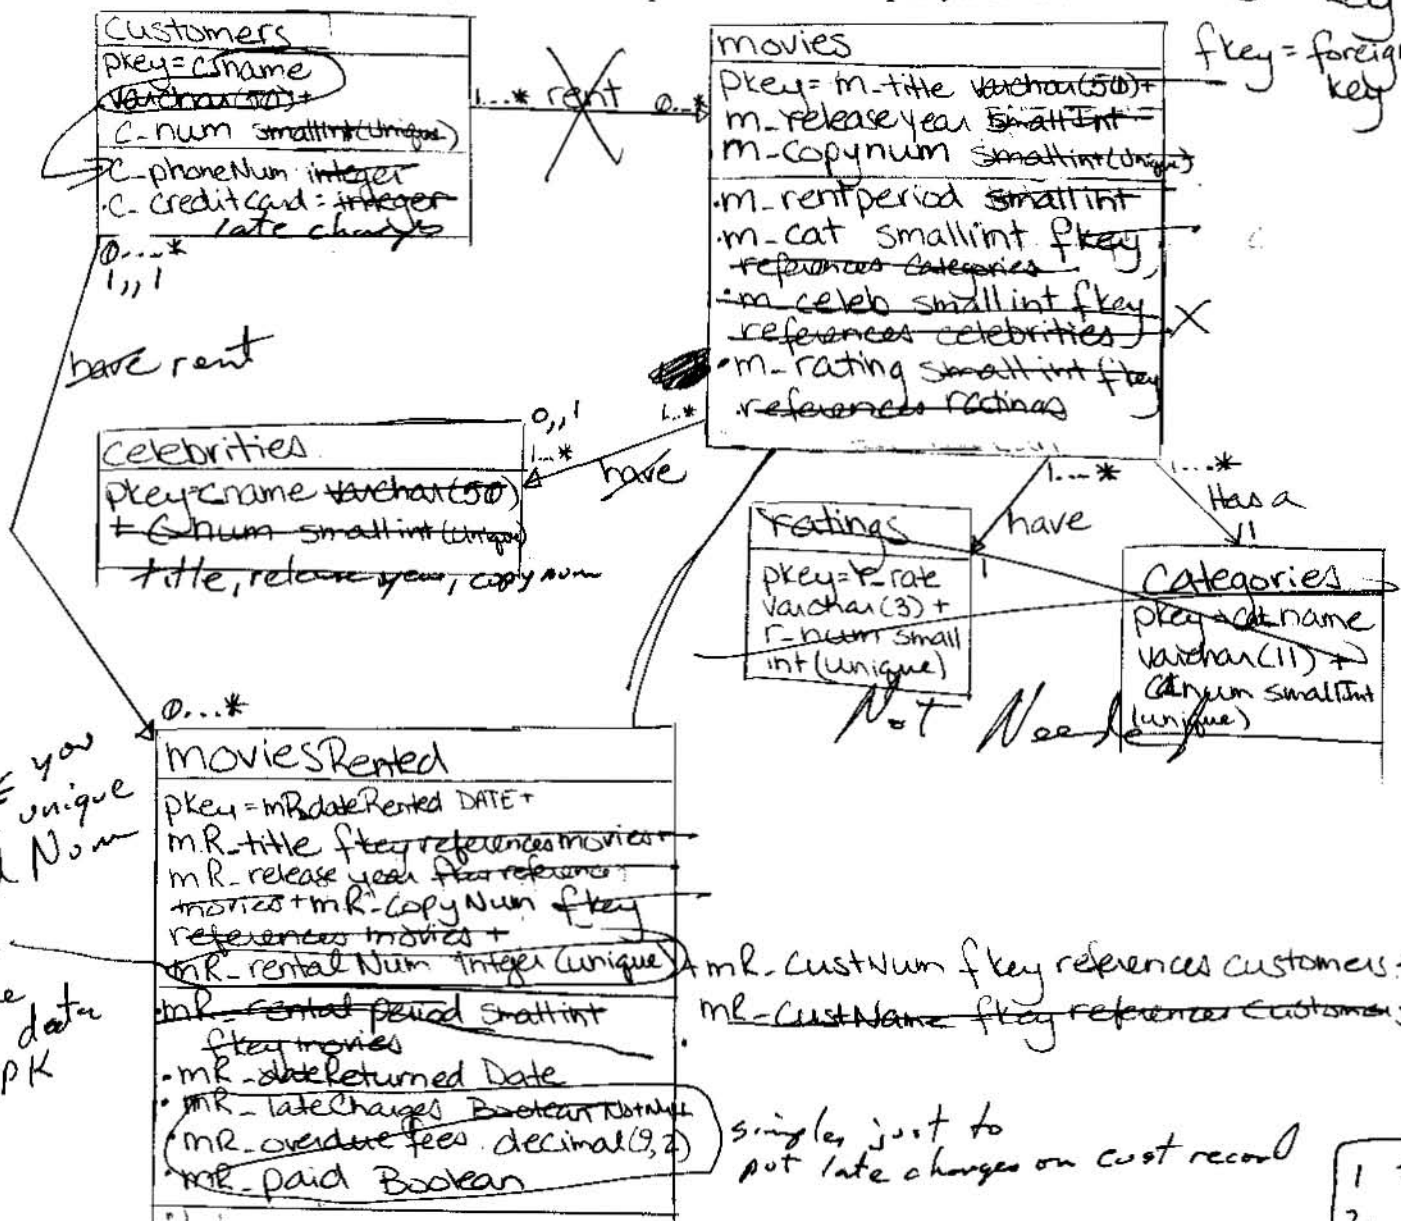 Customers
pkey=csname
varchar(50)+
c_num smallint(unique)
c_phoneNum integer
c_creditcard: integer
late charges
0...*
1,,1
1...* rent 0...*
movies
pkey= m_title varchar(50)+
m_releaseyear smallInt
m_copynum smallint(unique)
m_rentperiod smallint
m_cat smallint fkey,
references categories
m_celeb smallint fkey
references celebrities
m_rating smallint fkey
references ratings
key
fkey = foreign
key
have rent
celebrities
pkey=cname varchar(50)
+ c_num smallint(unique)
title, release year, copy num
0,,1
1...*
1..*
have
1...*
have
1
1...*
Has a
1
ratings
pkey=r_rate
varchar(3)+
r_num small
int(unique)
categories
pkey=cat_name
varchar(11) +
catnum smallInt
(unique)
Not Needed
0...*
moviesRented
pkey=mR_dateRented DATE+
mR_title fkey references movies+
mR_release year fkey references
movies+mR_copyNum fkey
references movies +
mR_rentalNum integer(unique)
+mR_CustNum fkey references customers
mR_CustName fkey references Customers
mR_rental period smallint
fkey movies
mR_dateReturned Date
mR_lateCharges Boolean NotNull
mR_overdue fees decimal(9,2)
mR_paid Boolean
you
unique
Num
data
PK
simpler just to
put late charges on cust record
1
2